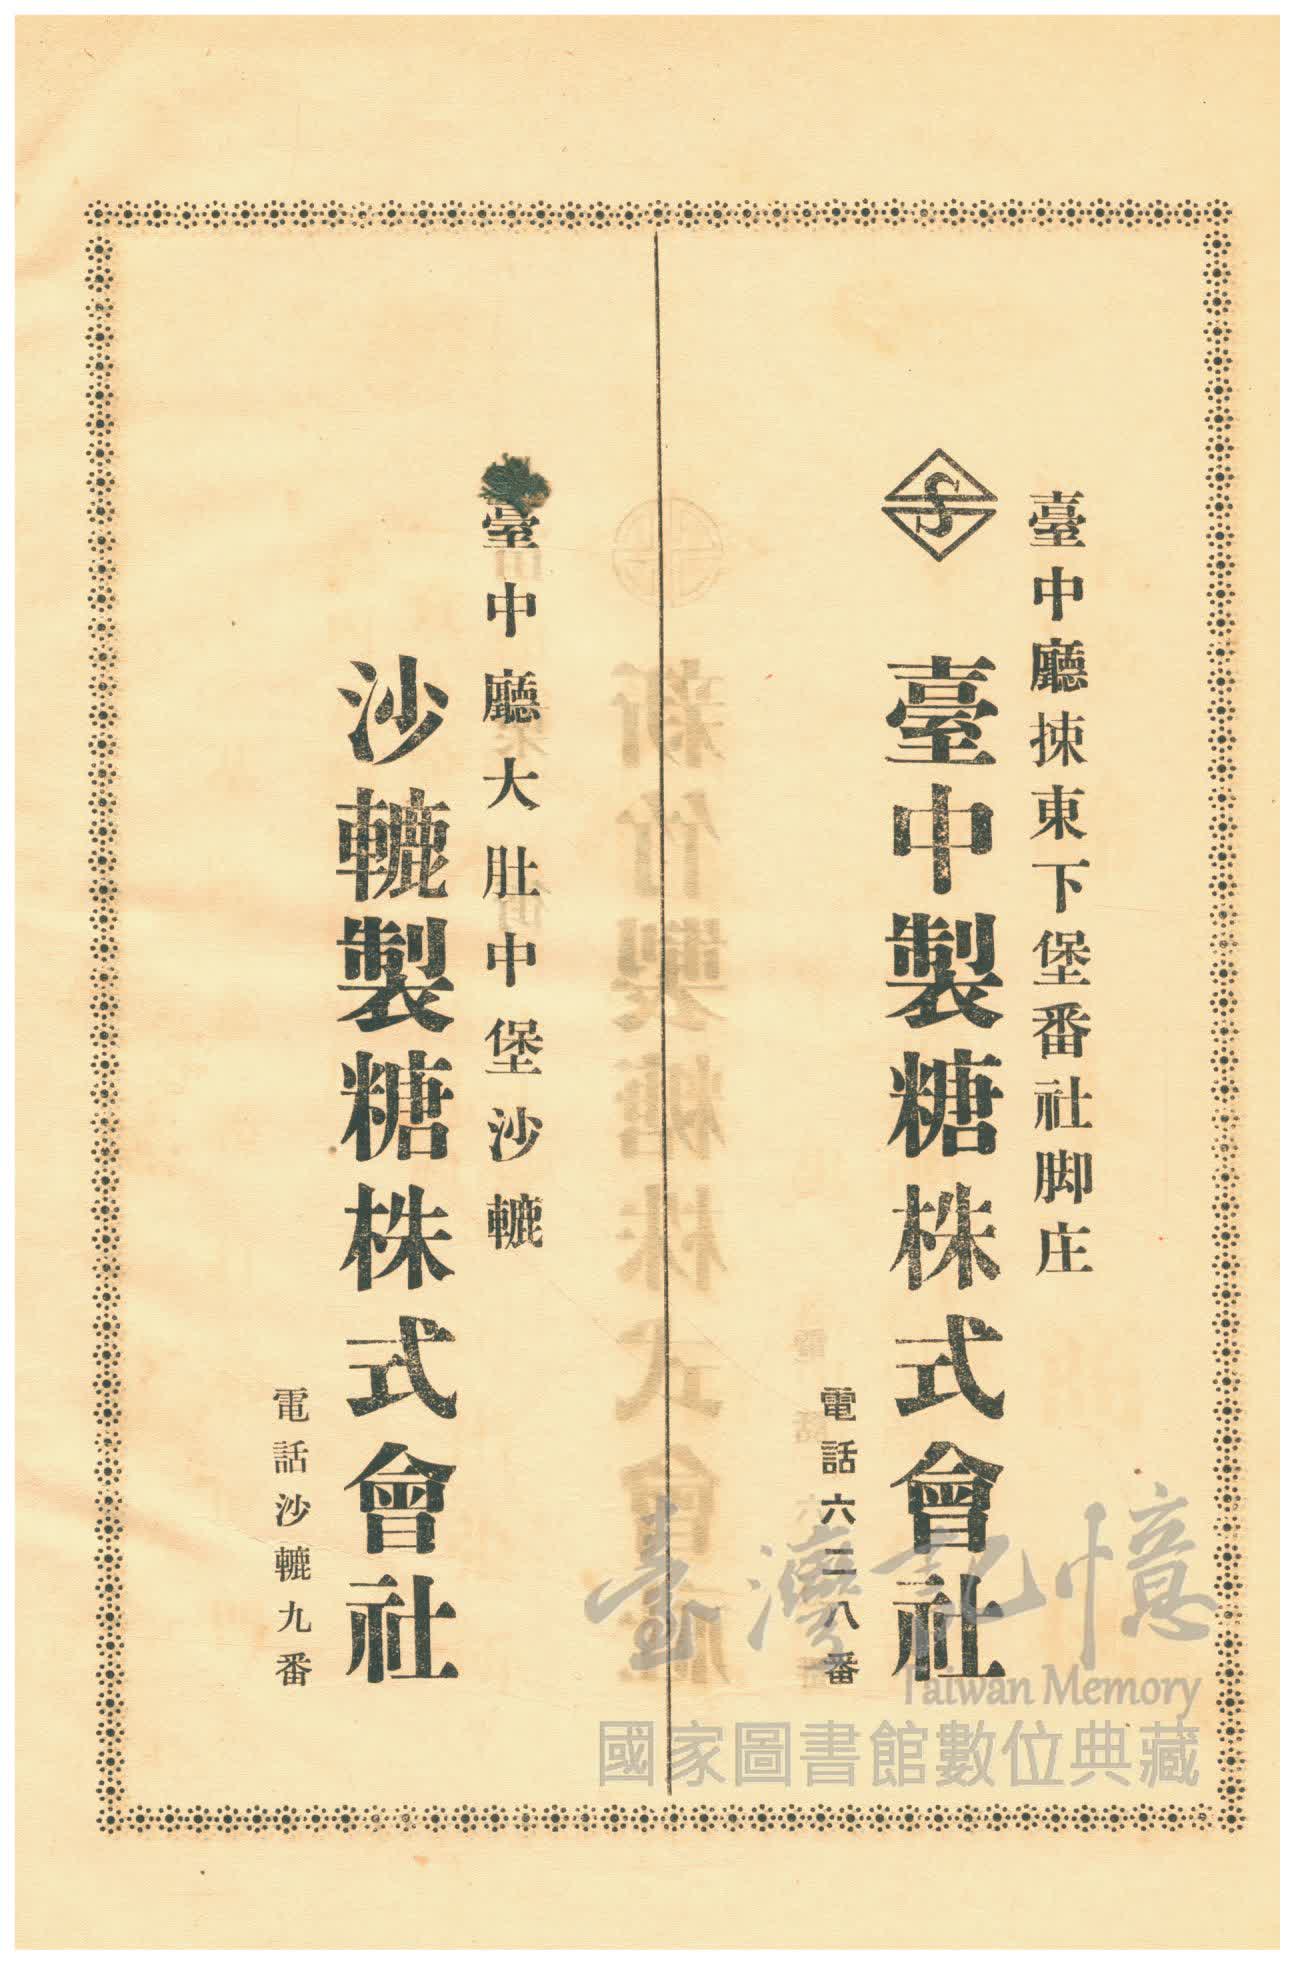 臺中廳揀東下堡番社脚庄
S
臺中製糖株式會社
電話六二八番
臺中廳大肚中堡沙轆
沙轆製糖株式會社
電話沙轆九番
臺灣記憶
Taiwan Memory
國家圖書館數位典藏